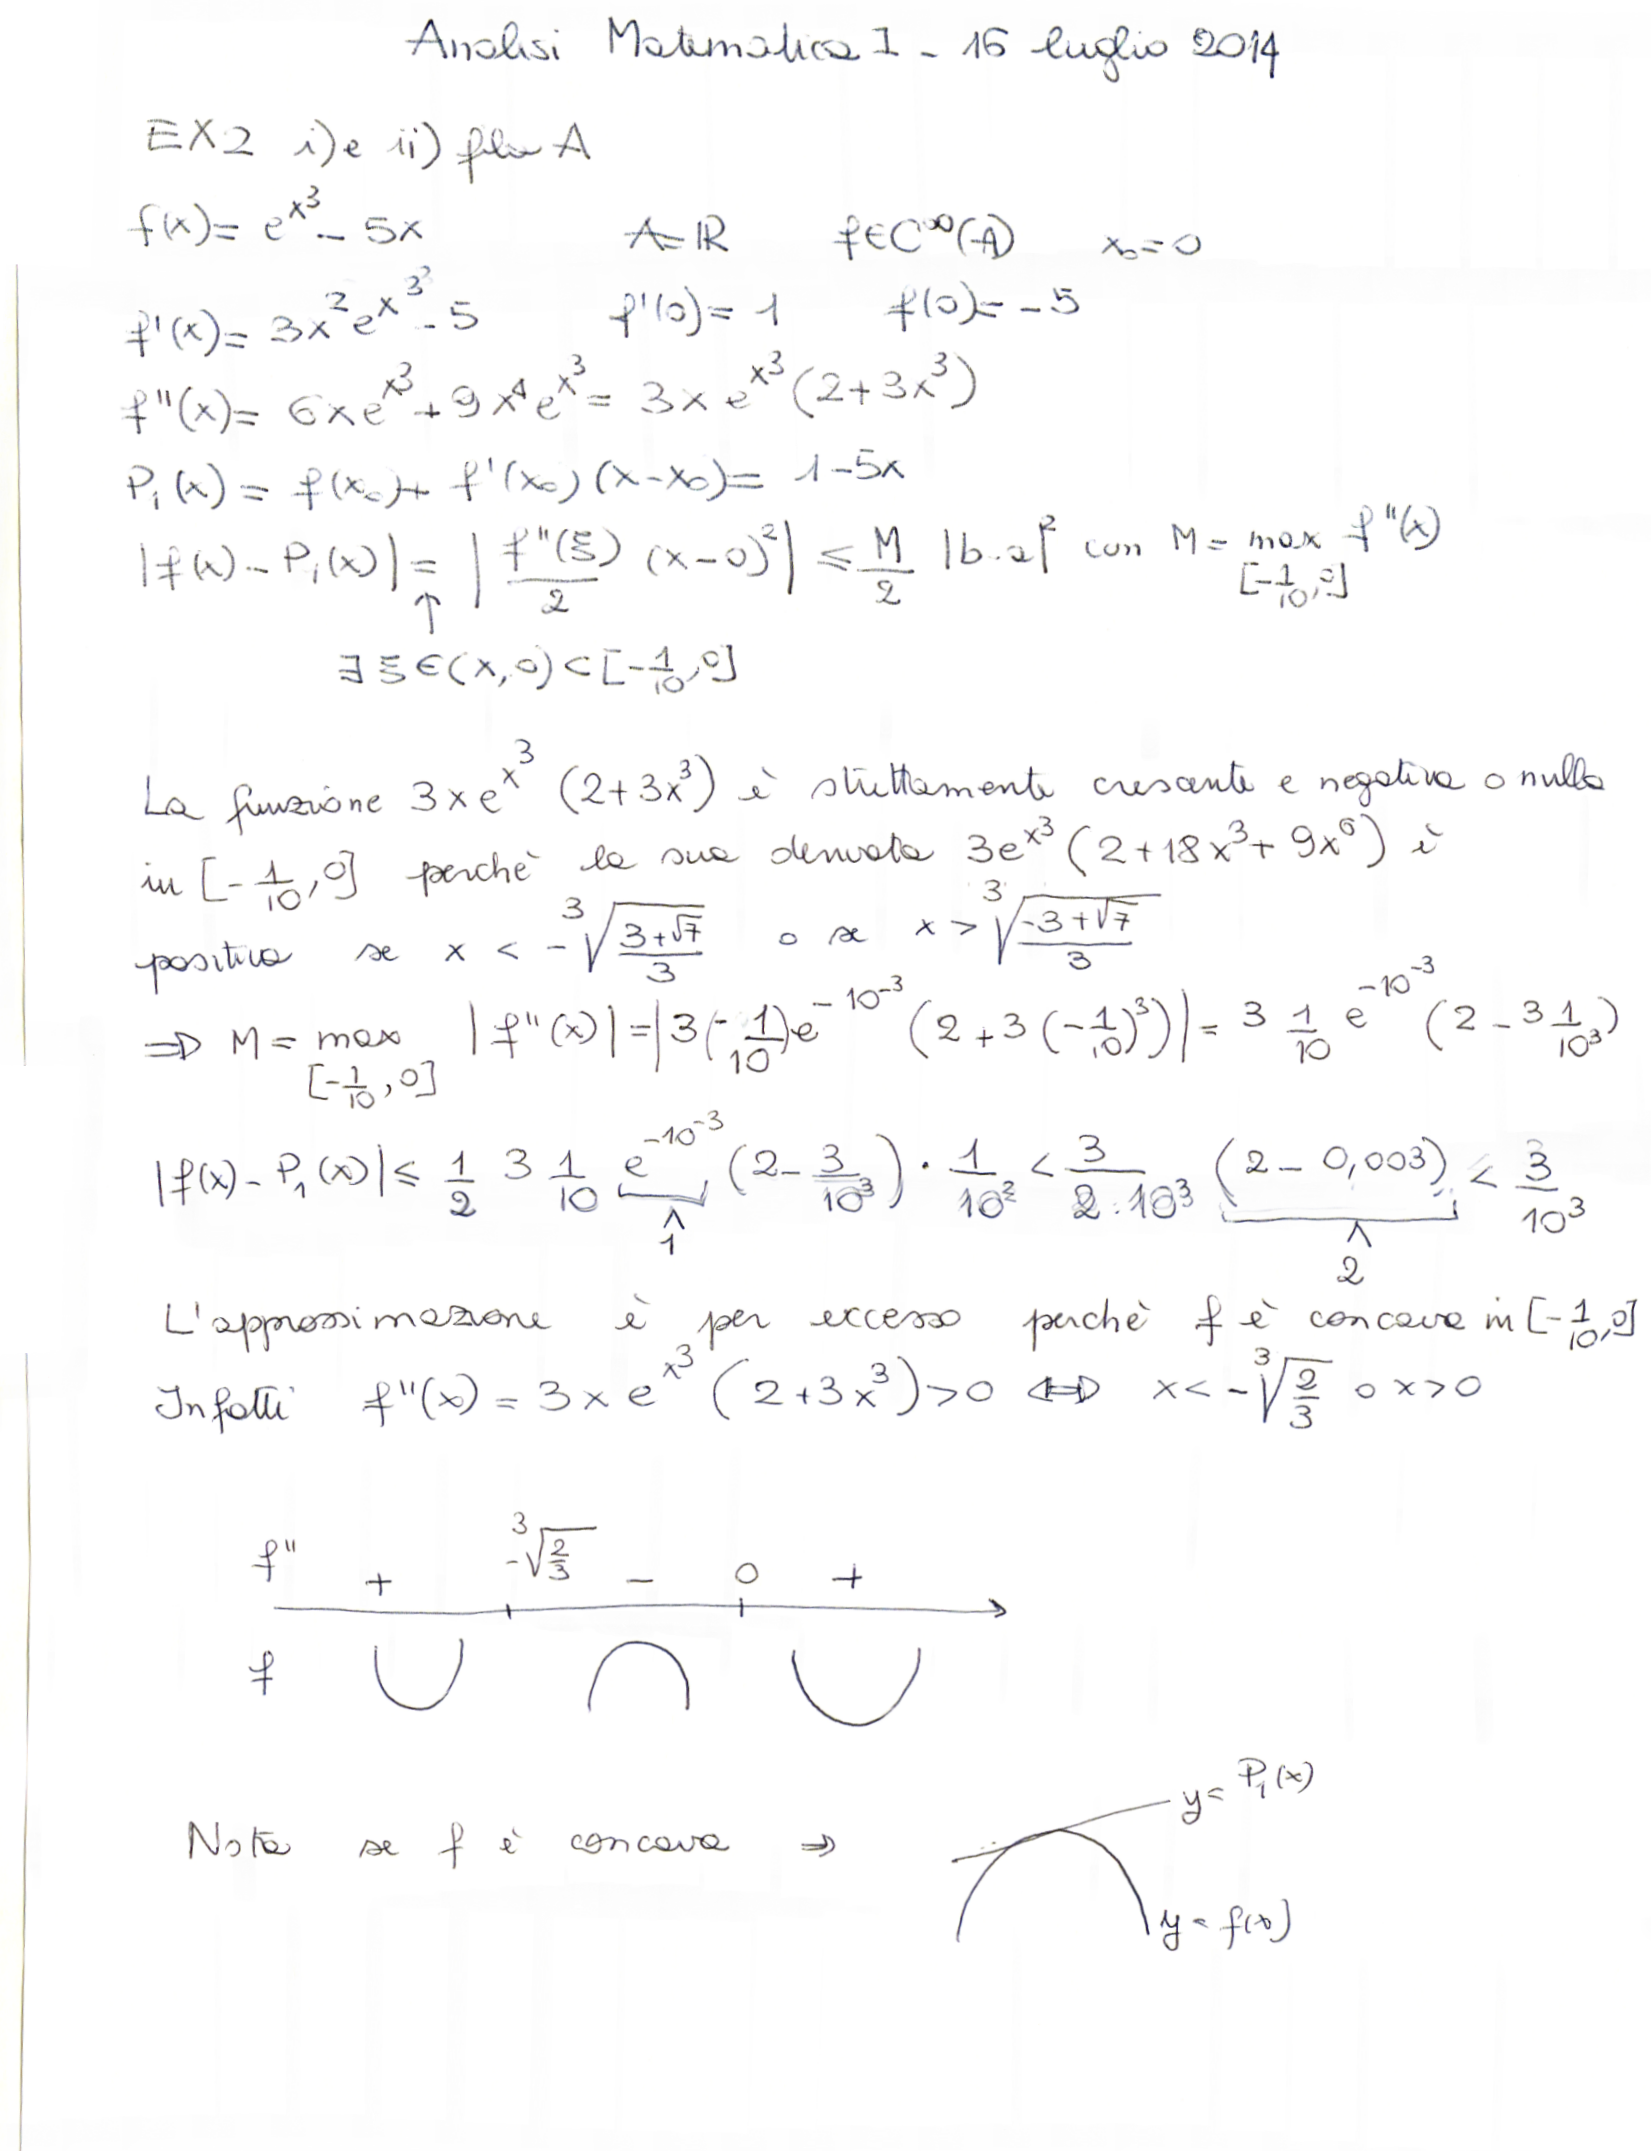 Analisi Matematica I - 16 luglio 2014
EX2 i) e ii) fila A
f(x) = e^{x^3} - 5x A = ℝ f ∈ C^∞(A) x_0 = 0
f'(x) = 3x^2 e^{x^3} - 5 f'(0) = 1 f(0) = -5
f''(x) = 6x e^{x^3} + 9x^4 e^{x^3} = 3x e^{x^3} (2+3x^3)
P_1(x) = f(x_0) + f'(x_0)(x-x_0) = 1-5x
|f(x) - P_1(x)| = |f''(ξ)/2 (x-0)^2| ≤ M/2 |b-a|^2 con M = max_{[-1/10,0]} f''(x)
↑
∃ ξ ∈ (x,0) ⊂ [-1/10,0]
La funzione 3x e^{x^3} (2+3x^3) è strettamente crescente e negativa o nulla
in [-1/10,0] perchè la sua derivata 3e^{x^3} (2+18x^3+9x^6) è
positiva se x < -∛((3+√7)/3) o se x > ∛((-3+√7)/3)
⇒ M = max_{[-1/10,0]} |f''(x)| = |3(-1/10)e^{-10^{-3}} (2+3(-1/10)^3)| = 3 1/10 e^{-10^{-3}} (2-3 1/10^3)
|f(x) - P_1(x)| ≤ 1/2 3 1/10 e^{-10^{-3}} (2-3/10^3) · 1/10^2 < 3/(2·10^3) (2-0,003) < 3/10^3
∧ ∧
1 2
L'approssimazione è per eccesso perchè f è concava in [-1/10,0]
Infatti f''(x) = 3x e^{x^3} (2+3x^3) > 0 ⇔ x < -∛(2/3) o x > 0
f'' + -∛(2/3) - 0 +
f
Nota se f è concava ⇒
y = P_1(x)
y = f(x)